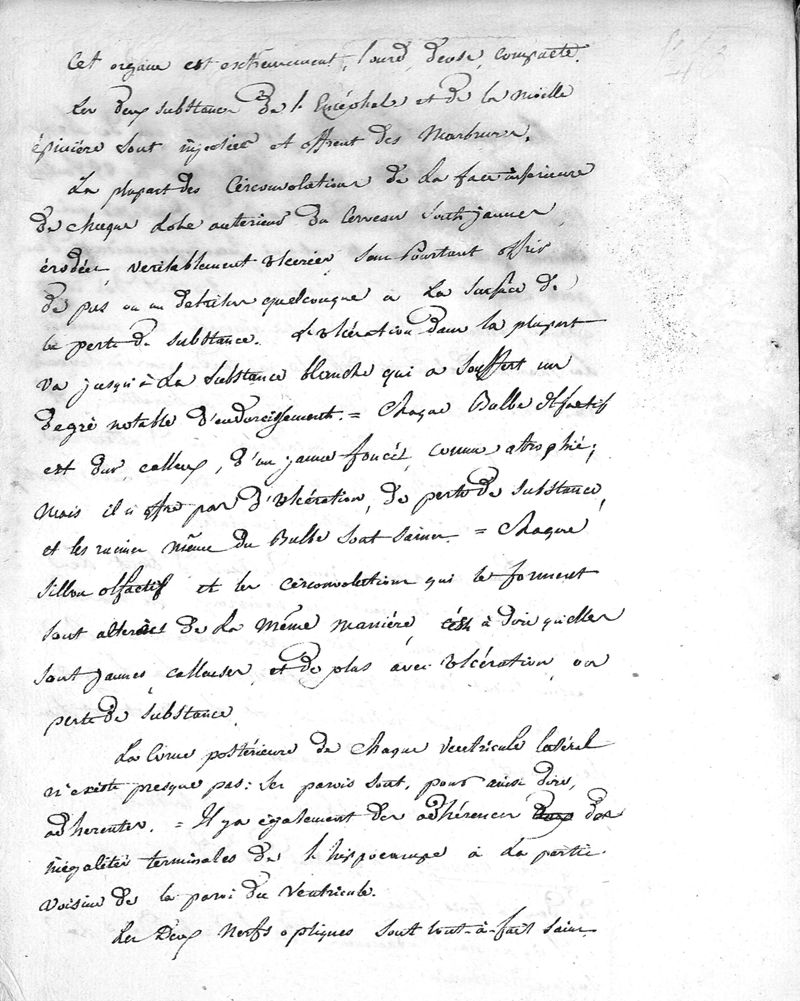 Cet organe est extrêmement lourd, dense, compacte.
Les deux substances de l'Encéphale et de la moëlle
épinière sont injectées et offrent des Marbrures.
La plupart des Circonvolutions de la face inférieure
de chaque Lobe antérieur du Cerveau sont jaunes,
érodées, veritablement ulcerées, sans Pourtant offrir
de pus ou un detritus quelconque à la surface de
la perte de substance. L'ulcération dans la plupart
va jusqu'à la substance blanche qui a souffert un
dégré notable d'endurcissement. = Chaque Bulbe olfactif
est dur, calleux, d'un jaune foncé, comme atrophié;
mais il n'offre pas d'ulcération, de perte de substance,
et les racines même du Bulbe sont saines. = Chaque
sillon olfactif et les circonvolutions qui le forment
sont altérées de la même manière c'est à dire qu'elles
sont jaunes, calleuses, et de plus avec ulcération, ou
perte de substance.
La Corne postérieure de chaque ventricule latéral
n'existe presque pas: ses parois sont, pour ainsi dire,
adherentes. = Il y a également des adhérences des
inégalités terminales de l'hippocampe à la partie
voisine de la paroi du Ventricule.
Les Deux Nerfs optiques sont tout-à-fait sains.